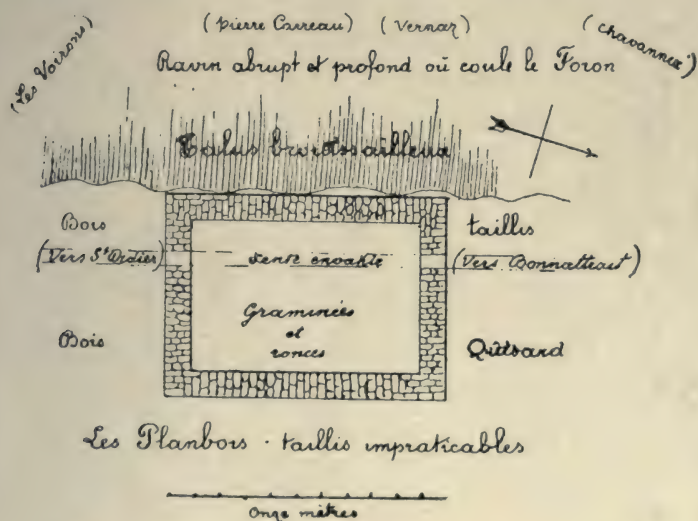 (Les Voirons)
(Pierre Carreau) (Vernaz)
(Chavannex)
Ravin abrupt et profond où coule le Foron
Talus broussailleux
Bois
taillis
(Vers St Didier)
Sente
(Vers Bonnatrait)
Graminées
et
ronces
Bois
Les Planbois - taillis impraticables
Onze mètres